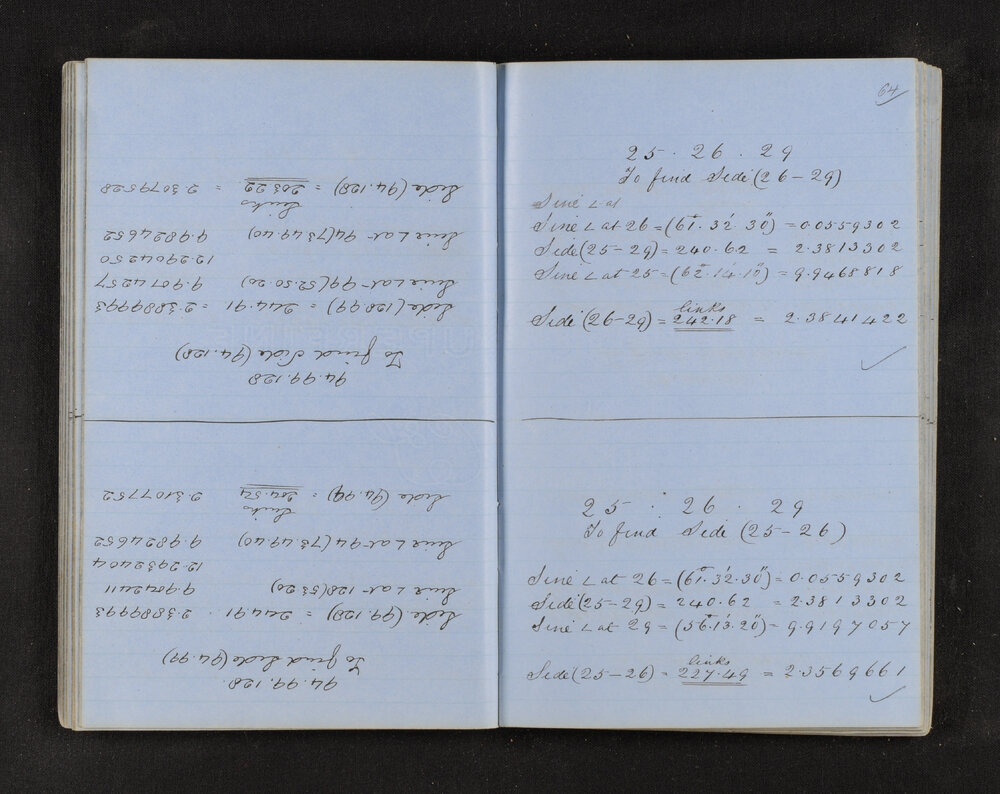 94.99.128.
To find Side (94.99)
Side (99.128) = 244.91 . 2.3889993
Sine ∠ at 128 (53.20) 9.9042411
12.2932404
Sine ∠ at 94 (73°49.40) 9.9824652
Links
Side (94.99) = 204.54 2.3107752
94.99.128
To find Side (94.128)
Side (128.99) = 244.91 = 2.3889993
Sine ∠ at 99 (52.50.20) 9.9014257
12.2904250
Sine ∠ at 94 (73°49.40) 9.9824652
Links
Side (94.128) = 203.22 = 2.3079598
64
25 . 26 . 29
To find Side (26-29)
Sine ∠ at
Sine ∠ at 26 = (61°. 32'. 30") = 0.0559302
Side (25-29) = 240.62 = 2.3813302
Sine ∠ at 25 = (62°. 14'. 10") = 9.9468818
links
Side (26-29) = 242.18 = 2.3841422
25 . 26 . 29
To find Side (25-26)
Sine ∠ at 26 = (61°. 32'. 30") = 0.0559302
Side (25-29) = 240.62 = 2.3813302
Sine ∠ at 29 = (56°. 13'. 20") = 9.9197057
links
Side (25-26) = 227.49 = 2.3569661